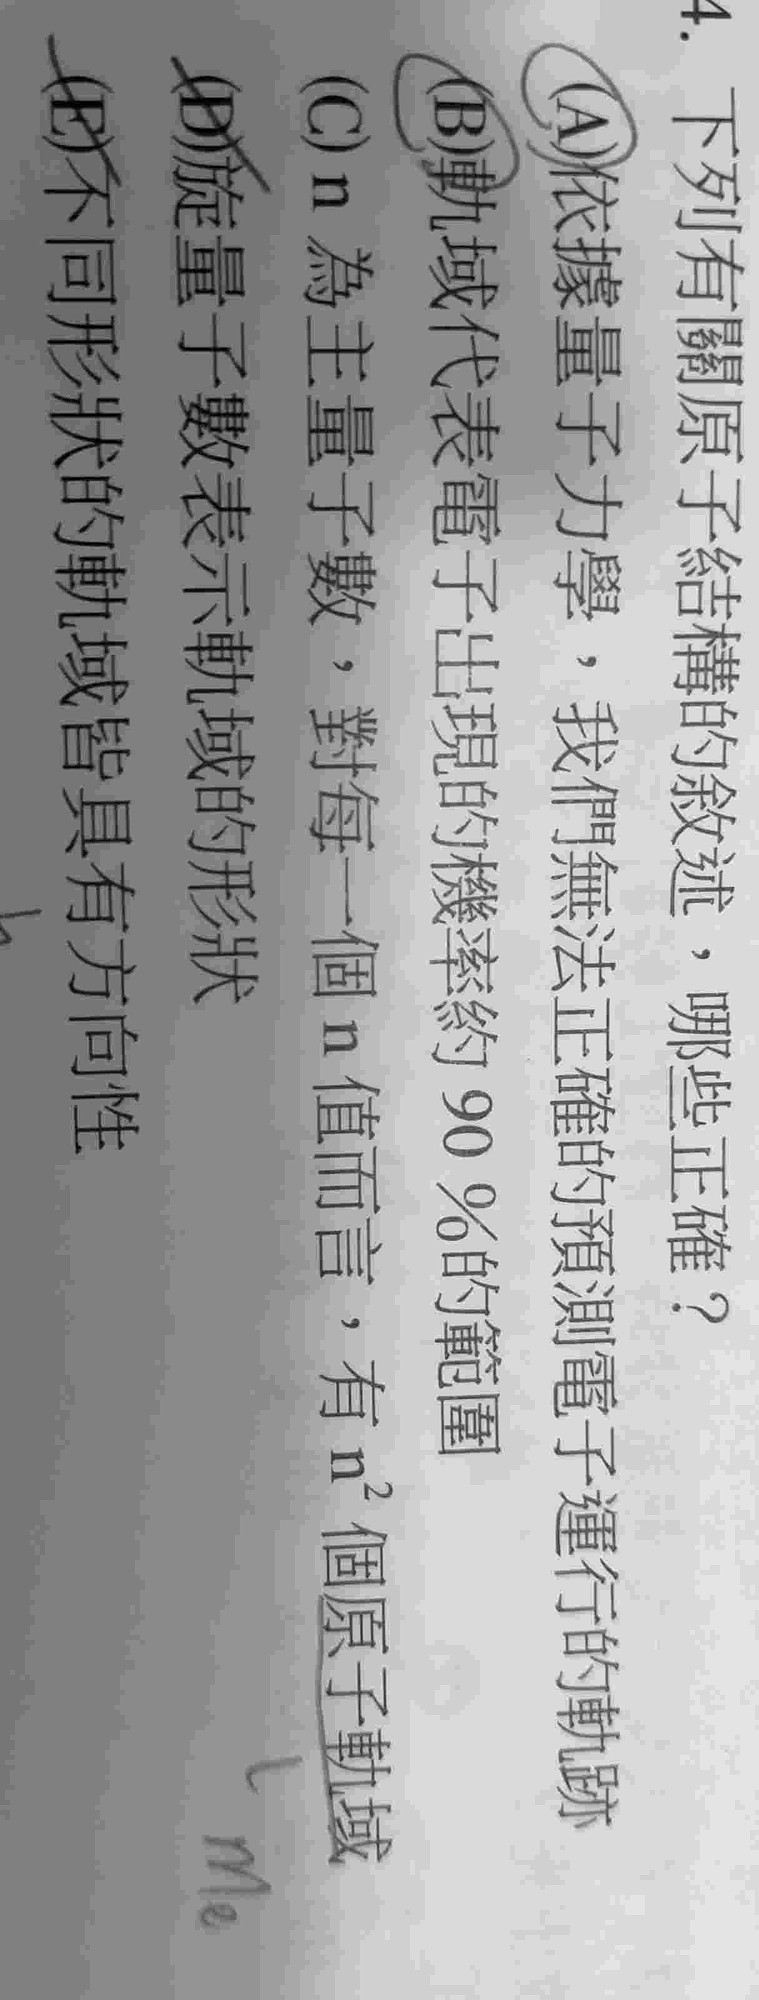 4. 下列有關原子結構的敘述，哪些正確？
(A)依據量子力學，我們無法正確的預測電子運行的軌跡
(B)軌域代表電子出現的機率約 90 %的範圍
(C) n 為主量子數，對每一個 n 值而言，有 n² 個原子軌域
(D)旋量子數表示軌域的形狀
(E)不同形狀的軌域皆具有方向性